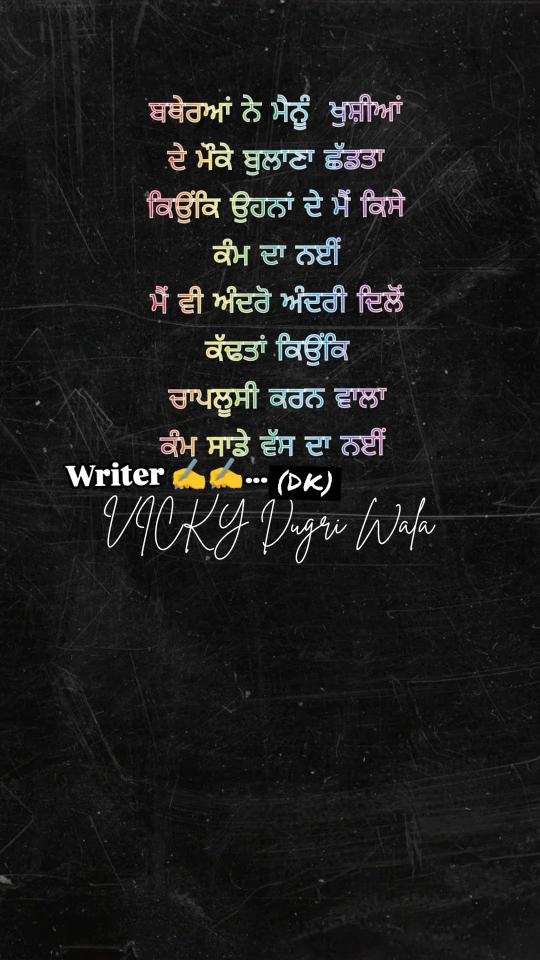 ਬਥੇਰਆਂ ਨੇ ਮੈਨੂੰ ਖੁਸ਼ੀਆਂ
ਦੇ ਮੌਕੇ ਬੁਲਾਣਾ ਛੱਡਤਾ
ਕਿਉਂਕਿ ਉਹਨਾਂ ਦੇ ਮੈਂ ਕਿਸੇ
ਕੰਮ ਦਾ ਨਈਂ
ਮੈਂ ਵੀ ਅੰਦਰੋ ਅੰਦਰੀ ਦਿਲੋਂ
ਕੱਢਤਾਂ ਕਿਉਂਕਿ
ਚਾਪਲੂਸੀ ਕਰਨ ਵਾਲਾ
ਕੰਮ ਸਾਡੇ ਵੱਸ ਦਾ ਨਈਂ
Writer ✍️✍️... (DK)
VICKY Dugri Wala